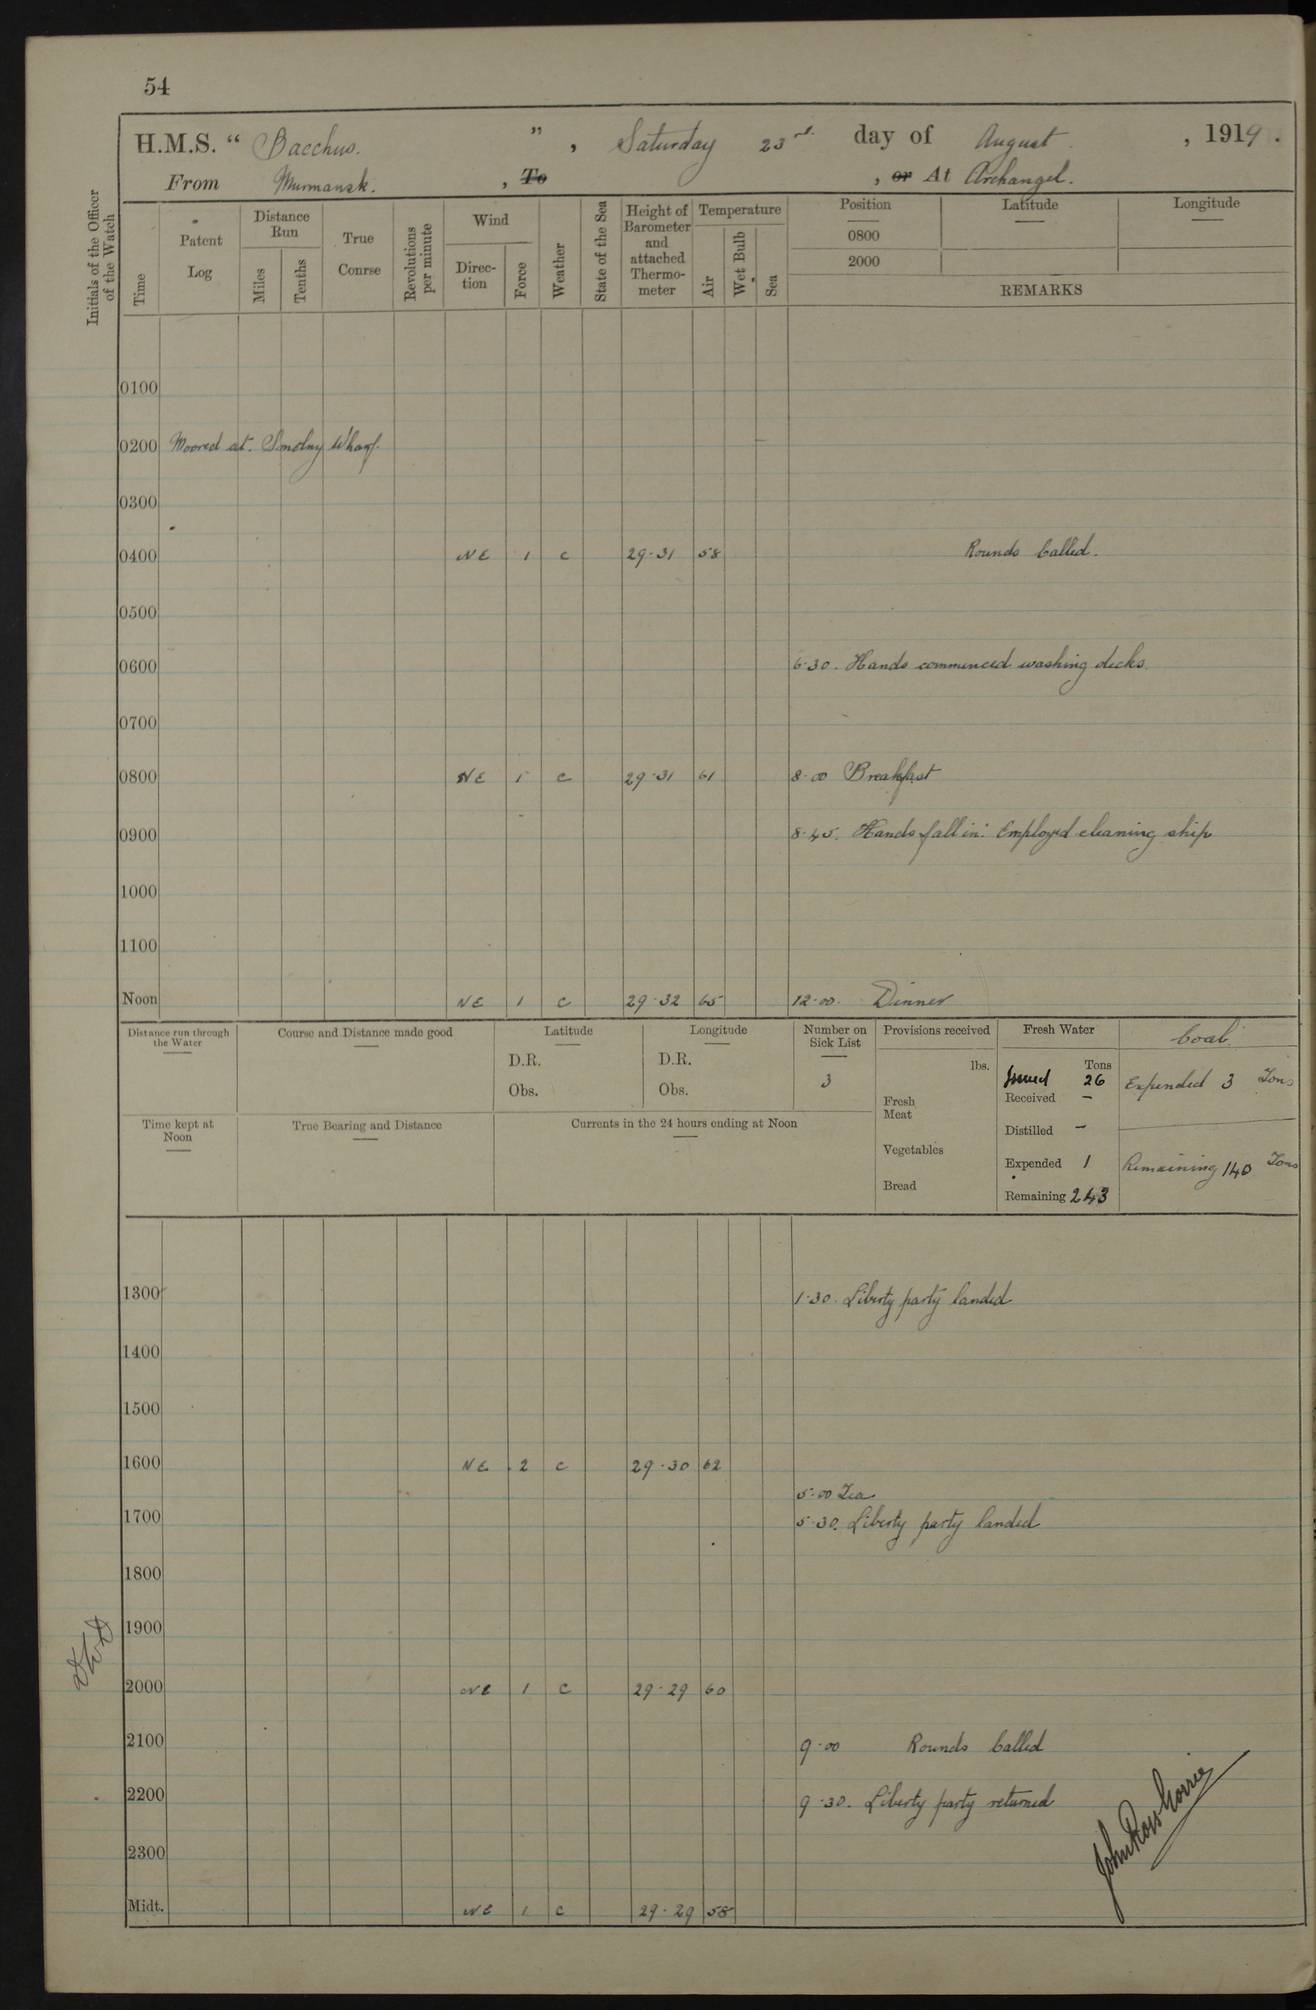 54
H.M.S. “ Bacchus. ” , Saturday 23rd. day of August , 1919.
From Murmansk. , To , or At Archangel.
Initials of the Officer of the Watch
Time
Patent Log
Distance Run
Miles
Tenths
True Course
Revolutions per minute
Wind
Direc-tion
Force
Weather
State of the Sea
Height of Barometer and attached Thermo-meter
Temperature
Air
Wet Bulb
Sea
Position
Latitude
Longitude
0800
2000
REMARKS
0100
0200 Moored at. Smolny Wharf.
0300
0400 NE 1 c 29.31 58 Rounds Called.
0500
0600 6.30. Hands commenced washing decks.
0700
0800 NE 1 c 29.31 61 8.00 Breakfast
0900 8.45. Hands fall in. Employed cleaning ship
1000
1100
Noon NE 1 c 29.32 65 12.00. Dinner
Distance run through the Water
Course and Distance made good
Latitude
D.R.
Obs.
Longitude
D.R.
Obs.
Number on Sick List
3
Provisions received
lbs.
Fresh Meat
Vegetables
Bread
Fresh Water
Tons
Issued 26
Received –
Distilled –
Expended 1
Remaining 243
Coal.
Expended 3 Tons
Remaining 140 Tons
Time kept at Noon
True Bearing and Distance
Currents in the 24 hours ending at Noon
1300 1.30. Liberty party landed
1400
1500
1600 NE 2 c 29.30 62
5.00 Tea
1700 5.30. Liberty party landed
1800
1900
2000 NE 1 c 29.29 60
2100 9.00 Rounds Called
2200 9.30. Liberty party returned
2300
Midt. NE 1 c 29.29 58